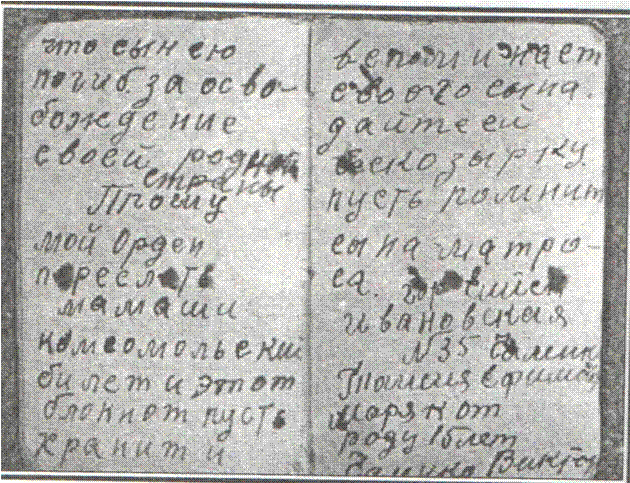 что сын ею
погиб. за осво-
бождение
своей родной
страны
Прошу
мой Орден
переслать
мамаши
комсомольский
билет и этот
блокнот пусть
хранит и
вспоминает
своего сына.
дайте ей
бескозырку
пусть помнит
сына матро-
са.
ивановская
№35
Таисия Ефимов
моряк от
роду 15 лет
Виктор